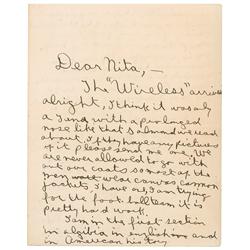 Dear Nita,—
The "Wireless" arrived
alright, I think it was only
a and with a prolonged
nose like that Salmond we read
about. If they have any pictures
of it please send me one. We
are never allowed to go with
out our coats so most of the
men wear canvas common
jackets I have one, I am trying
for the foot ball team it is
pretty hard work.
I am in the first section
in algibia in english and
in American history